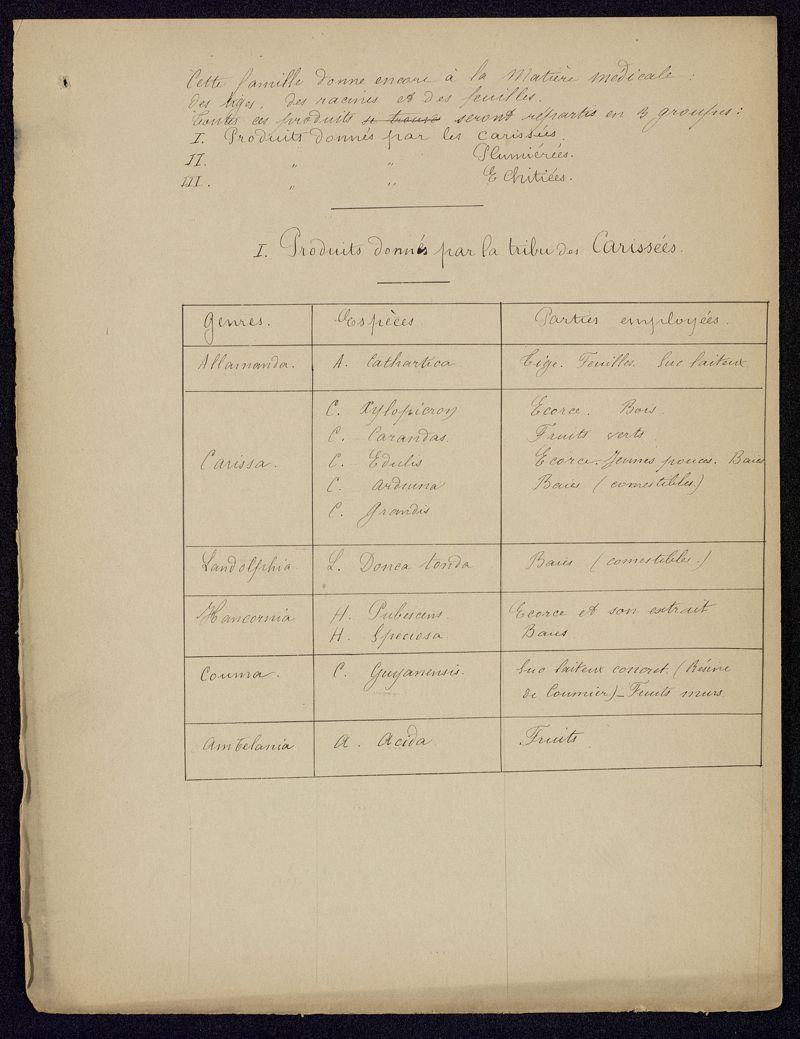 Cette famille donne encore à la Matière médicale :
des tiges, des racines et des feuilles.
Toutes ces produits se trouve seront répartis en 3 groupes :
I. Produits donnés par les carissées.
II. " " Plumiérées.
III. " " Echitiées.
I. Produits donnés par la tribu des Carissées.
Genres. Espèces Parties employées.
Allamanda. A. Cathartica Tige. Feuilles. Suc laiteux
Carissa. C. Xylopicron Ecorce. Bois
C. Carandas. Fruits verts
C. Edulis Ecorce. Jeunes pouces. Baies
C. Arduina Baies (comestibles.)
C. Grandis
Landolphia L. Donca tonda Baies (comestibles.)
Hancornia H. Pubescens Ecorce et son extrait
H. Speciosa Baies
Couma. C. Guyanensis. Suc laiteux concret. (Résine
de Coumier) _ Fruits murs.
Ambelania A. Acida Fruits